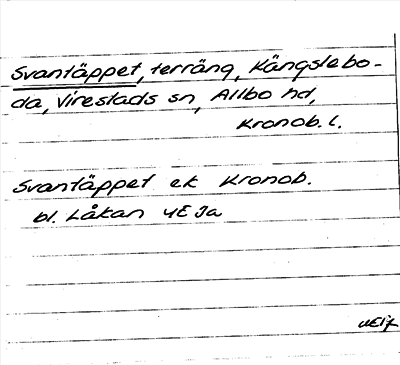 Svantäppet, terräng, Kängslebo-
da, Virestads sn, Allbo hd,
Kronob. l.
Svantäppet ek Kronob.
bl. Låkan 4E Ja